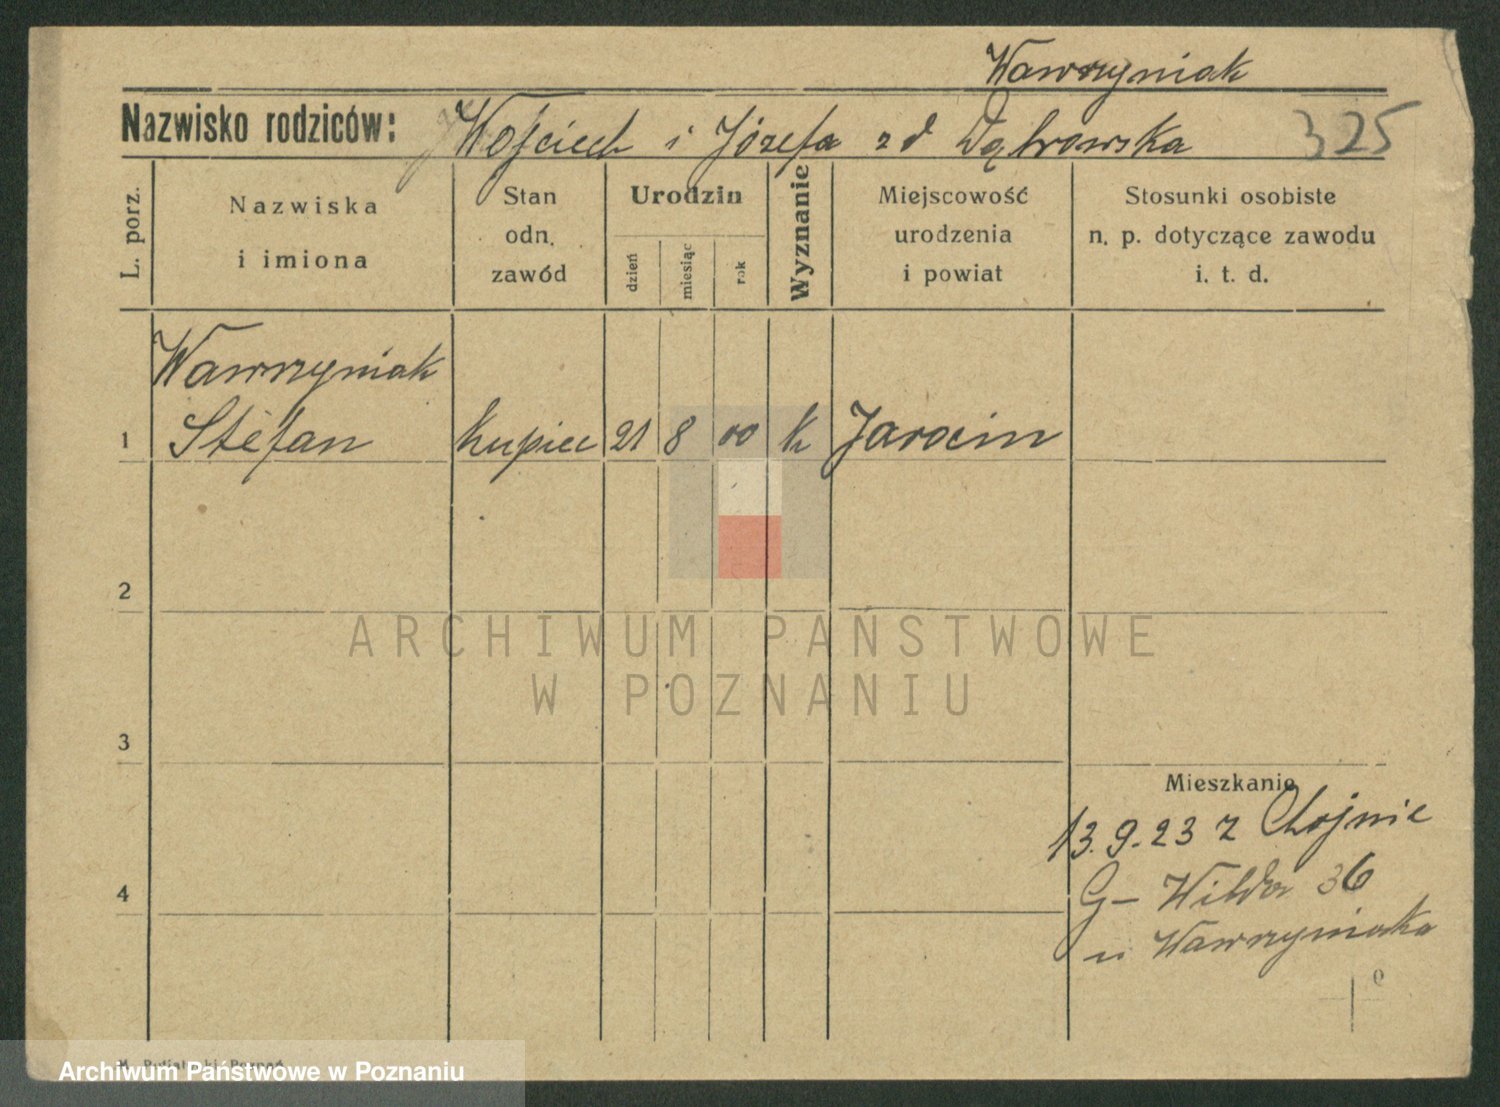 Wawrzyniak
Nazwisko rodziców: Wojciech i Józefa zd Dąbrowska 325
L. porz.
Nazwiska
i imiona
Stan
odn.
zawód
Urodzin
dzień
miesiąc
rok
Wyznanie
Miejscowość
urodzenia
i powiat
Stosunki osobiste
n. p. dotyczące zawodu
i. t. d.
Wawrzyniak
1 Stefan kupiec 21 8 00 k Jarocin
2
ARCHIWUM PAŃSTWOWE
W POZNANIU
3
Mieszkanie
13.9.23 z Chojnic
4
G- Wilda 36
u Wawrzyniaka
Archiwum Państwowe w Poznaniu